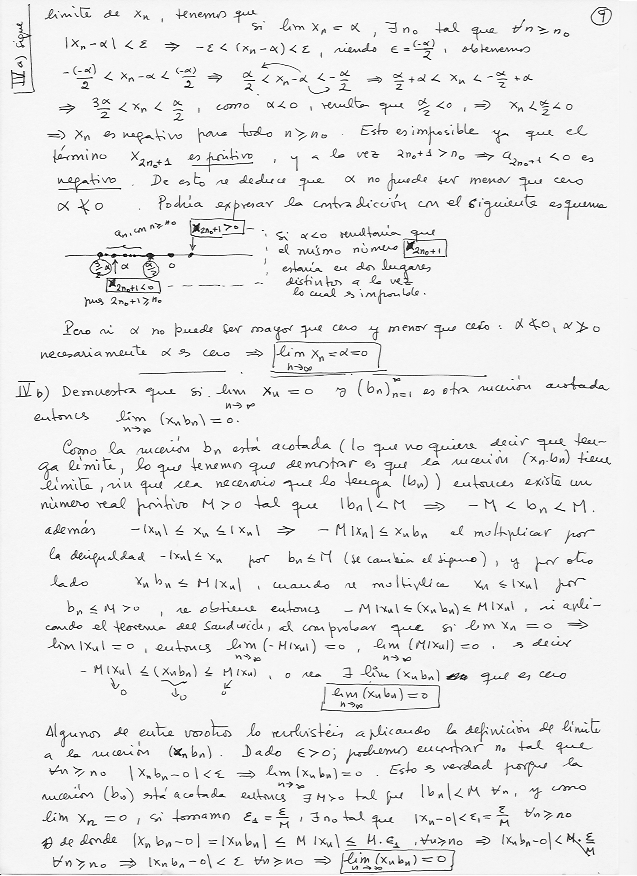 9
IV a) sigue
límite de xₙ, tenemos que
si lim xₙ = α, ∃ n₀ tal que ∀n ≥ n₀
|xₙ-α| < ε ⇒ -ε < (xₙ-α) < ε, siendo ε = (-α)/2, obtenemos
-(-α)/2 < xₙ-α < (-α)/2 ⇒ α/2 < xₙ-α < -α/2 ⇒ α/2 + α < xₙ < -α/2 + α
⇒ 3α/2 < xₙ < α/2, como α<0, resulta que α/2 < 0, ⇒ xₙ < α/2 < 0
⇒ xₙ es negativo para todo n ≥ n₀. Esto es imposible ya que el
término x₂ₙ₀₊₁ es positivo, y a la vez 2n₀+1 > n₀ ⇒ a₂ₙ₀₊₁ < 0 es
negativo. De esto se deduce que α no puede ser menor que cero
α ≮ 0. Podría expresar la contradicción con el siguiente esquema
aₙ, con n ≥ n₀
x₂ₙ₀₊₁ > 0
3α/2 α α/2 0
x₂ₙ₀₊₁ < 0
pues 2n₀+1 ≥ n₀
si α<0 resultaría que
el mismo número x₂ₙ₀₊₁
estaría en dos lugares
distintos a la vez
lo cual es imposible.
Pero si α no puede ser mayor que cero y menor que cero: α ≮ 0, α ≯ 0
necesariamente α es cero ⇒ lim xₙ = α = 0
n→∞
IV b) Demuestra que si lim xₙ = 0 y (bₙ)ₙ₌₁^∞ es otra sucesión acotada
n→∞
entonces lim (xₙbₙ) = 0.
n→∞
Como la sucesión bₙ está acotada (lo que no quiere decir que ten-
ga límite, lo que tenemos que demostrar es que la sucesión (xₙ.bₙ) tiene
límite, sin que sea necesario que lo tenga (bₙ)) entonces existe un
número real positivo M>0 tal que |bₙ| < M ⇒ -M < bₙ < M.
además -|xₙ| ≤ xₙ ≤ |xₙ| ⇒ -M|xₙ| ≤ xₙbₙ al multiplicar por
la desigualdad -|xₙ| ≤ xₙ por bₙ ≤ M (se cambia el signo), y por otro
lado xₙbₙ ≤ M|xₙ|, cuando se multiplica xₙ ≤ |xₙ| por
bₙ ≤ M > 0, se obtiene entonces -M|xₙ| ≤ (xₙbₙ) ≤ M|xₙ|, si apli-
cando el teorema del Sandwich, al comprobar que si lim xₙ = 0 ⇒
lim |xₙ| = 0, entonces lim (-M|xₙ|) = 0, lim (M|xₙ|) = 0, es decir
n→∞ n→∞
-M|xₙ| ≤ (xₙbₙ) ≤ M|xₙ|, o sea ∃ lim (xₙbₙ) que es cero
0 0 0
lim (xₙbₙ) = 0
n→∞
Algunos de entre vosotros lo resolvistéis aplicando la definición de límite
a la sucesión (xₙbₙ). Dado ε>0, podremos encontrar n₀ tal que
∀n ≥ n₀ |xₙbₙ-0| < ε ⇒ lim (xₙbₙ) = 0. Esto es verdad porque la
n→∞
sucesión (bₙ) está acotada entonces ∃ M>0 tal que |bₙ| < M ∀n, y como
lim xₙ = 0, si tomamos ε₁ = ε/M, ∃ n₀ tal que |xₙ-0| < ε₁ = ε/M ∀n ≥ n₀
de donde |xₙbₙ-0| = |xₙbₙ| ≤ M|xₙ| ≤ M.ε₁, ∀n ≥ n₀ ⇒ |xₙbₙ-0| < M.ε/M
∀n ≥ n₀ ⇒ |xₙbₙ-0| < ε ∀n ≥ n₀ ⇒ lim (xₙbₙ) = 0
n→∞